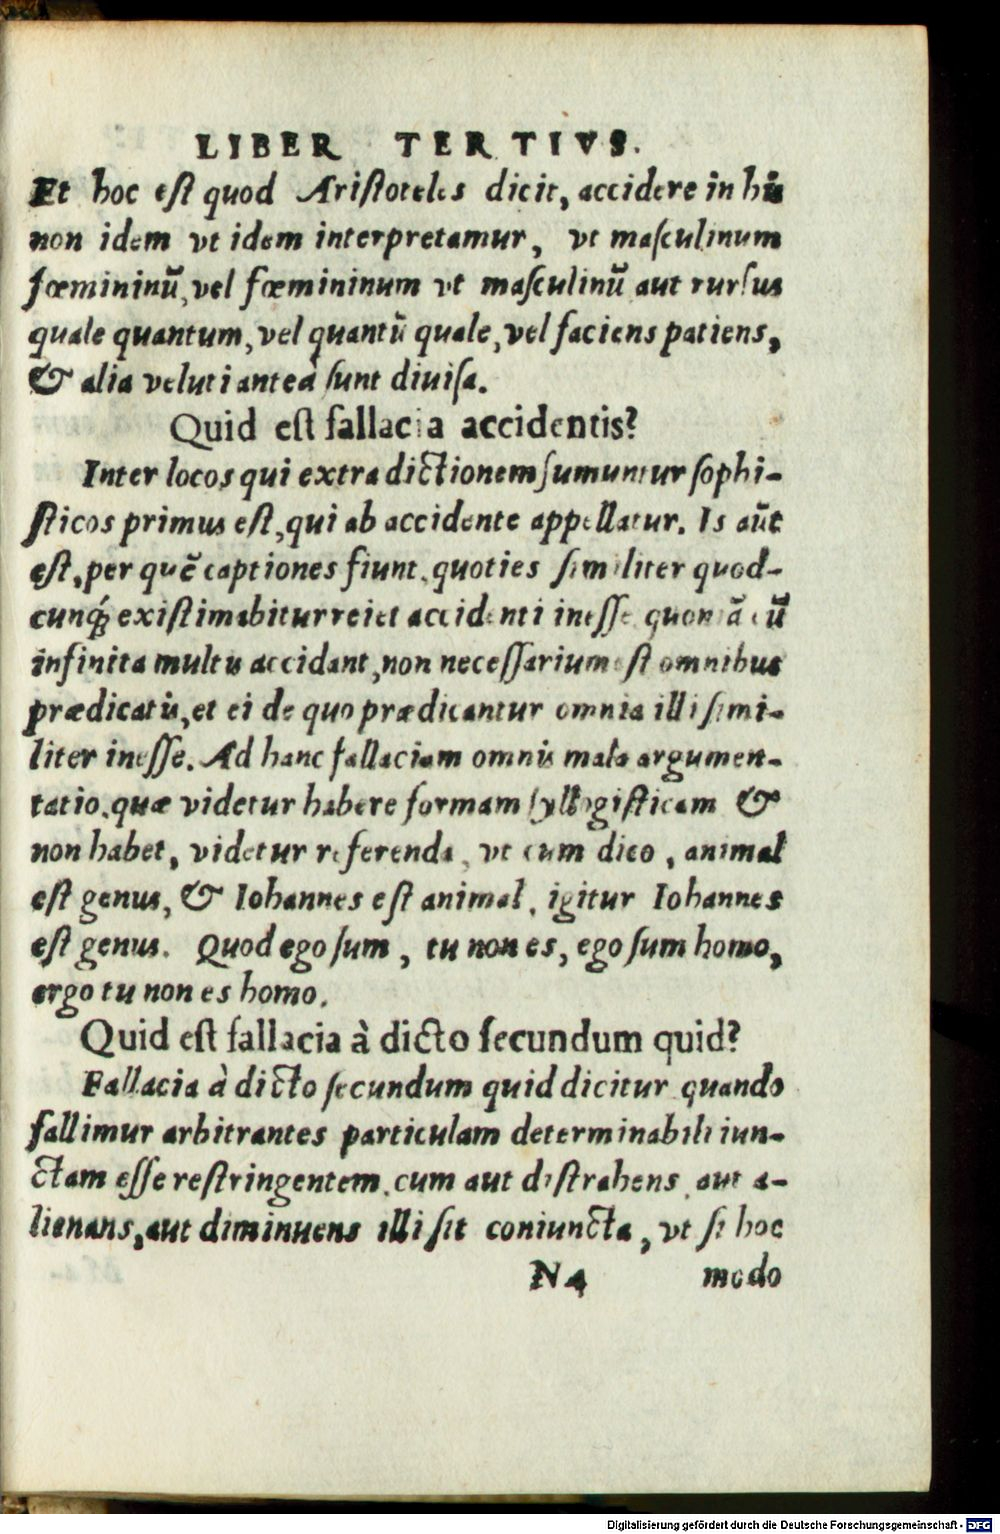 LIBER TERTIVS.
Et hoc eſt quod Ariſtoteles dicit, accidere in his
non idem vt idem interpretamur, vt maſculinum
fœmininũ, vel fœmininum vt maſculinũ aut rurſus
quale quantum, vel quantũ quale, vel faciens patiens,
& alia veluti anteà ſunt diuiſa.
Quid eſt fallacia accidentis?
Inter locos qui extra dictionem ſumuntur ſophi-
ſticos primus eſt, qui ab accidente appellatur. Is aũt
eſt, per quẽ captiones fiunt, quoties ſimiliter quod-
cunq́; exiſtimabitur rei et accidenti ineſſe quoniã cũ
infinita multis accidant, non neceſſarium eſt omnibus
prædicatis, et ei de quo prædicantur omnia illi ſimi-
liter ineſſe. Ad hanc fallaciam omnis mala argumen-
tatio, quæ videtur habere formam ſyllogiſticam &
non habet, videtur referenda, vt cum dico, animal
eſt genus, & Iohannes eſt animal, igitur Iohannes
eſt genus. Quod ego ſum, tu non es, ego ſum homo,
ergo tu non es homo.
Quid eſt fallacia à dicto ſecundum quid?
Fallacia à dicto ſecundum quid dicitur quando
fallimur arbitrantes particulam determinabili iun-
ctam eſſe reſtringentem, cum aut diſtrahens, aut a-
lienans, aut diminuens illi ſit coniuncta, vt ſi hoc
N4 modo
Digitalisierung gefördert durch die Deutsche Forschungsgemeinschaft - DFG